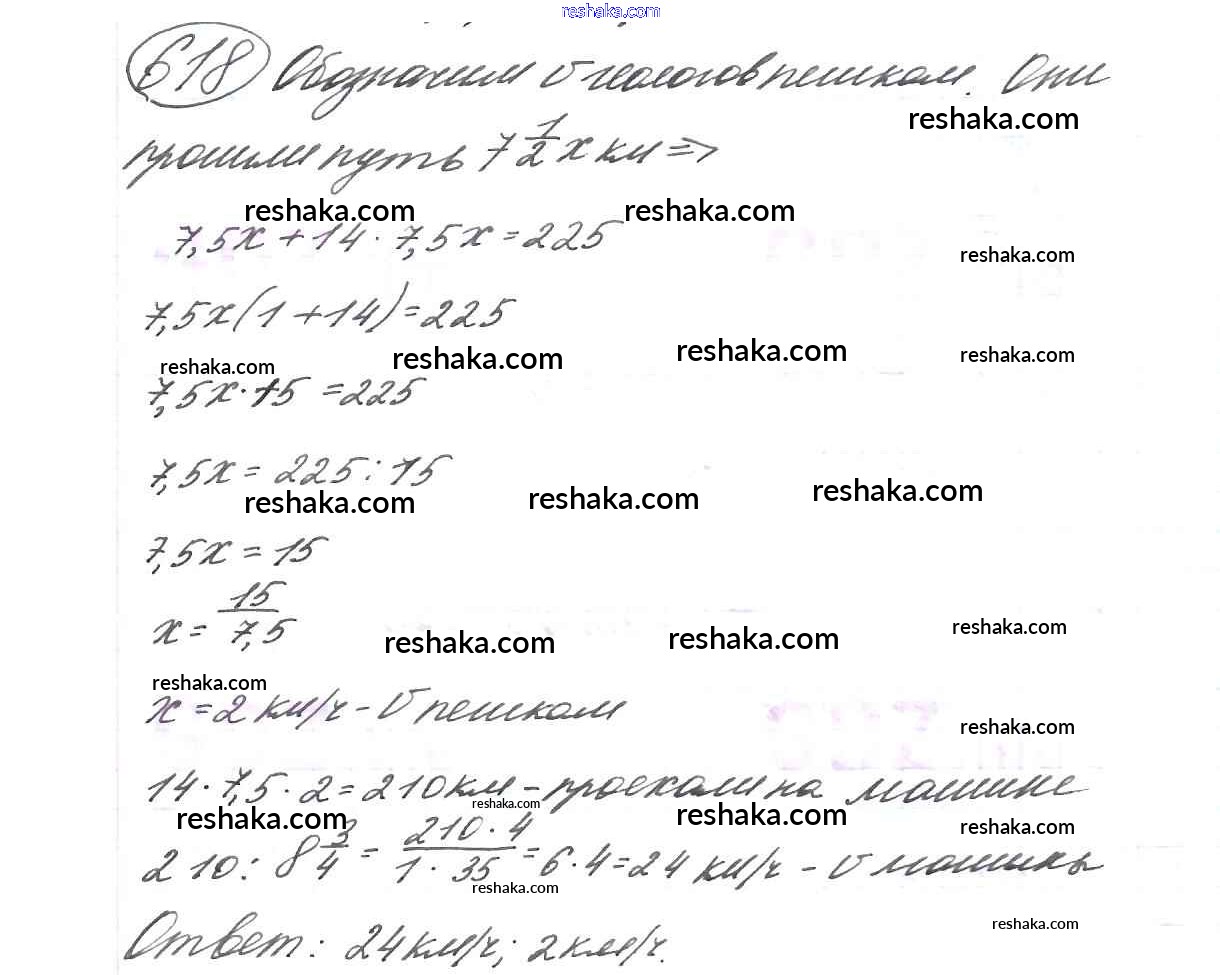 reshaka.com
618 Обозначим v геологов пешком. Они
reshaka.com
прошли путь 7 1/2 x км =>
reshaka.com reshaka.com
7,5x + 14 · 7,5x = 225
reshaka.com
7,5x(1 + 14) = 225
reshaka.com reshaka.com reshaka.com reshaka.com
7,5x · 15 = 225
7,5x = 225 : 15
reshaka.com reshaka.com reshaka.com
7,5x = 15
x = 15/7,5
reshaka.com reshaka.com reshaka.com
reshaka.com
x = 2 км/ч – v пешком
reshaka.com
14 · 7,5 · 2 = 210 км – проехали на машине
reshaka.com reshaka.com reshaka.com reshaka.com
210 : 8 3/4 = 210 · 4/1 · 35 = 6 · 4 = 24 км/ч – v машины
reshaka.com
Ответ: 24 км/ч; 2 км/ч.
reshaka.com